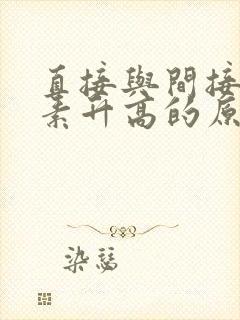 直接與間接
素升高的原
染瑟